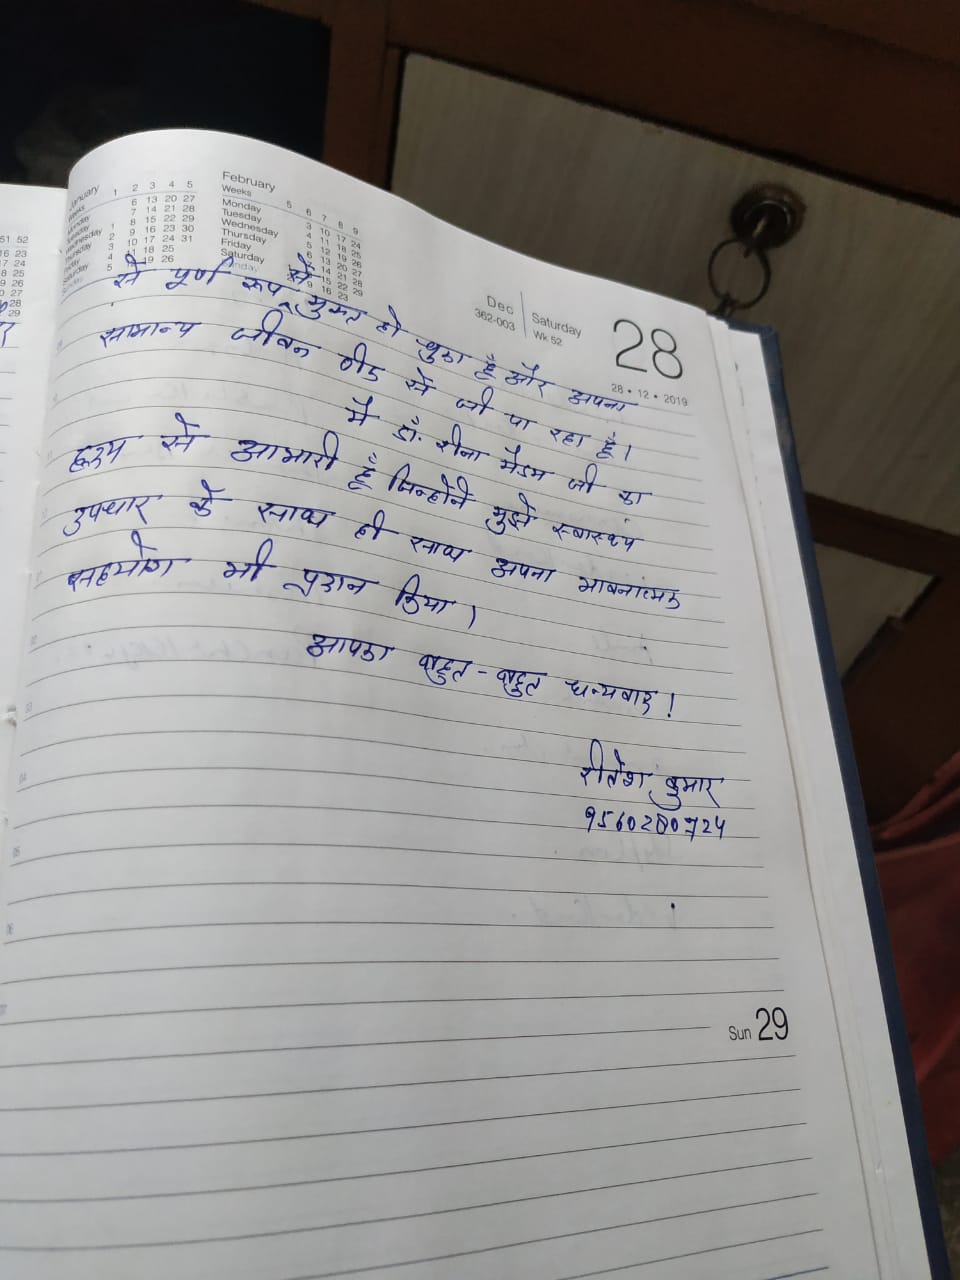 January
Weeks 1 2 3 4 5
Monday 6 13 20 27
Tuesday 7 14 21 28
Wednesday 1 8 15 22 29
Thursday 2 9 16 23 30
Friday 3 10 17 24 31
Saturday 4 11 18 25
Sunday 5 12 19 26
February
Weeks 5 6 7 8 9
Monday 3 10 17 24
Tuesday 4 11 18 25
Wednesday 5 12 19 26
Thursday 6 13 20 27
Friday 7 14 21 28
Saturday 15 22 29
9 16 23
Dec
362-003
Saturday
Wk 52
28
28 • 12 • 2019
से पूर्ण रूप से मुक्त हो चुका हूँ और अपना
सामान्य जीवन ठीक से जी पा रहा हूँ।
मैं डॉ. रीना मैडम जी का
हृदय से आभारी हूँ जिन्होंने मुझे स्वास्थ्य
उपचार के साथ ही साथ अपना भावनात्मक
सहयोग भी प्रदान किया।
आपका बहुत-बहुत धन्यवाद!
रीतेश कुमार
9560280724
Sun 29